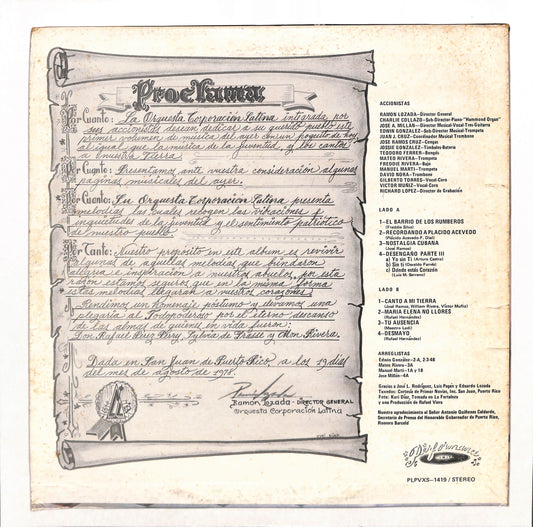 Proclama
Por Cuanto: La Orquesta Corporación Latina integrada por
sus accionistas desean dedicar a su querido pueblo este
primer volumen de música del ayer con un poquito de hoy
al igual que la música de la juventud, y los cantos
a nuestra tierra.
Por Cuanto: Presentamos ante vuestra consideración algunas
páginas musicales del ayer.
Por Cuanto: Su Orquesta Corporación Latina presenta
melodías las cuales recogen las vibraciones e
inquietudes de la juventud y el sentimiento patriótico
de nuestro pueblo.
Por Tanto: Nuestro propósito en este album es revivir
algunas de aquellas melodías que brindaron
alegría e inspiración a nuestros abuelos, por esta
razón estamos seguros que en la misma forma
estas melodías llegaran a vuestros corazones.
Rendimos un homenaje póstumo y elevamos una
plegaria al Todopoderoso por el eterno descanso
de las almas de quienes en vida fueron:
Don Rafael Quiz Pery, Sylvia de Grasse y Mon Rivera.
Dada en San Juan de Puerto Rico, a los 19 dias
del mes de agosto de 1978.
Ramon Lozada - DIRECTOR GENERAL
Orquesta Corporación Latina
ACCIONISTAS
RAMON LOZADA-Director General
CHARLIE COLLAZO-Sub-Director-Piano "Hammond Organ"
JOSE A. MILLAN-Director Musical-Vocal-Tres-Guitarra
EDWIN GONZALEZ-Sub-Director Musical-Trompeta
JUAN J. CRUZ-Coordinador Musical Trombon
JOSE RAMOS CRUZ-Congas
JOSSIE GONZALEZ-Timbales-Bateria
TEODORO FERRER-Bongós
MATEO RIVERA-Trompeta
FREDDIE RIVERA-Bajo
MANUEL MARTI-Trompeta
DAVID NORA-Trombón
GILBERTO TORRES-Vocal-Coro
VICTOR MUÑIZ-Vocal-Coro
RICHARD LOPEZ-Director de Grabación
LADO A
1-EL BARRIO DE LOS RUMBEROS
(Freddie Silva)
2-RECORDANDO A PLACIDO ACEVEDO
(Plácido Acevedo-P. Dial)
3-NOSTALGIA CUBANA
(José Ramos)
4-DESENGAÑO PARTE III
a) Ya sin Ti (Arturo Castro)
b) Sin ti (Osvaldo Farrés)
c) Dónde estás Corazón
(Luis M. Serrano)
LADO B
1-CANTO A MI TIERRA
(José Ramos, William Rivera, Víctor Muñiz)
2-MARIA ELENA NO LLORES
(Rafael Hernández)
3-TU AUSENCIA
(Maestro Ladi)
4-DESMAYO
(Rafael Hernández)
ARREGLISTAS
Edwin González-2-A, 2-3-4B
Mateo Rivera-3A
Manuel Marti-1A y 1B
José Millán-4A
Gracias a José L. Rodríguez, Luis Pagán y Eduardo Lozada
Foto: Kuri Díaz, Tomada en La Fortaleza
y una Producción de Rafael Viera
Nuestro agradecimiento al Señor Antonio Quiñones Calderón,
Secretario de Prensa del Honorable Gobernador de Puerto Rico,
Romero Barceló
Performance
PLPVXS-1419 / STEREO